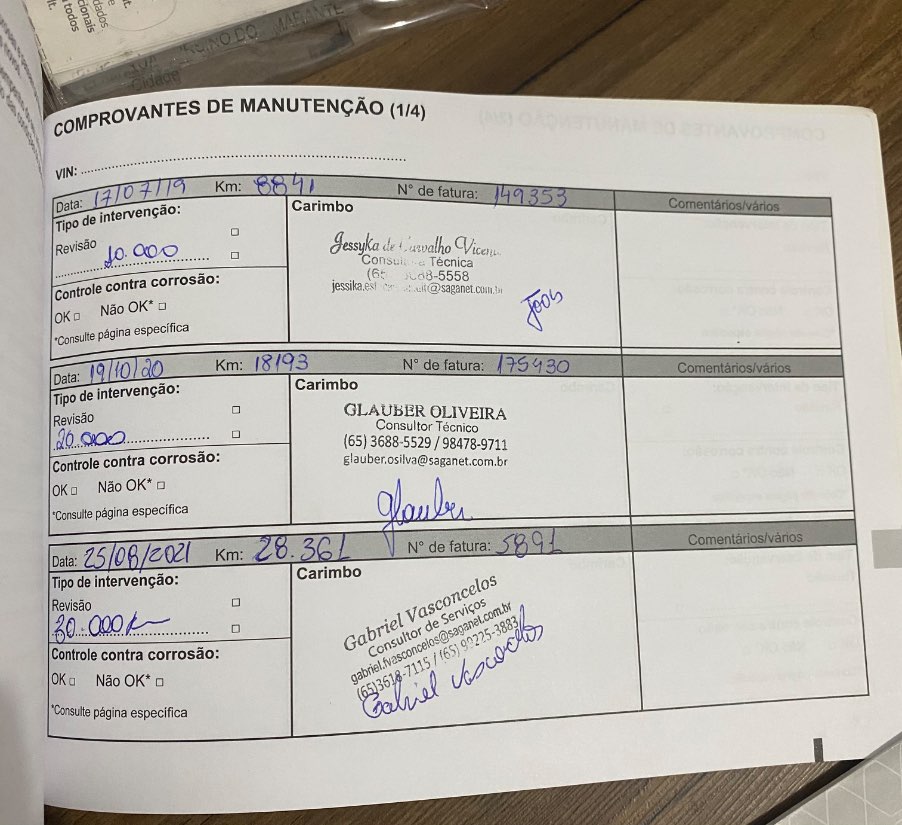 dados
cionais
todos
Cidade
COMPROVANTES DE MANUTENÇÃO (1/4)
VIN:
Data: 17/07/19 Km: 8841 N° de fatura: 149353 Comentários/vários
Tipo de intervenção:
Carimbo
Revisão
10.000
Jessyka de Carvalho
Técnica
-5558
@saganet.com.br
Controle contra corrosão:
OK Não OK*
*Consulte página específica
Data: 19/10/20 Km: 18193 N° de fatura: 175430 Comentários/vários
Tipo de intervenção:
Carimbo
Revisão
20.000
GLAUBER OLIVEIRA
Consultor Técnico
(65) 3688-5529 / 98478-9711
glauber.osilva@saganet.com.br
Controle contra corrosão:
OK Não OK*
*Consulte página específica
Glauber
Data: 25/08/2021 Km: 28.361 N° de fatura: 5891 Comentários/vários
Tipo de intervenção:
Carimbo
Revisão
30.000
Gabriel Vasconcelos
Consultor de Serviços
gabriel.fvasconcelos@saganet.com.br
(65)3618-7115 / (65) 99225-3883
Gabriel Vasconcelos
Controle contra corrosão:
OK Não OK*
*Consulte página específica